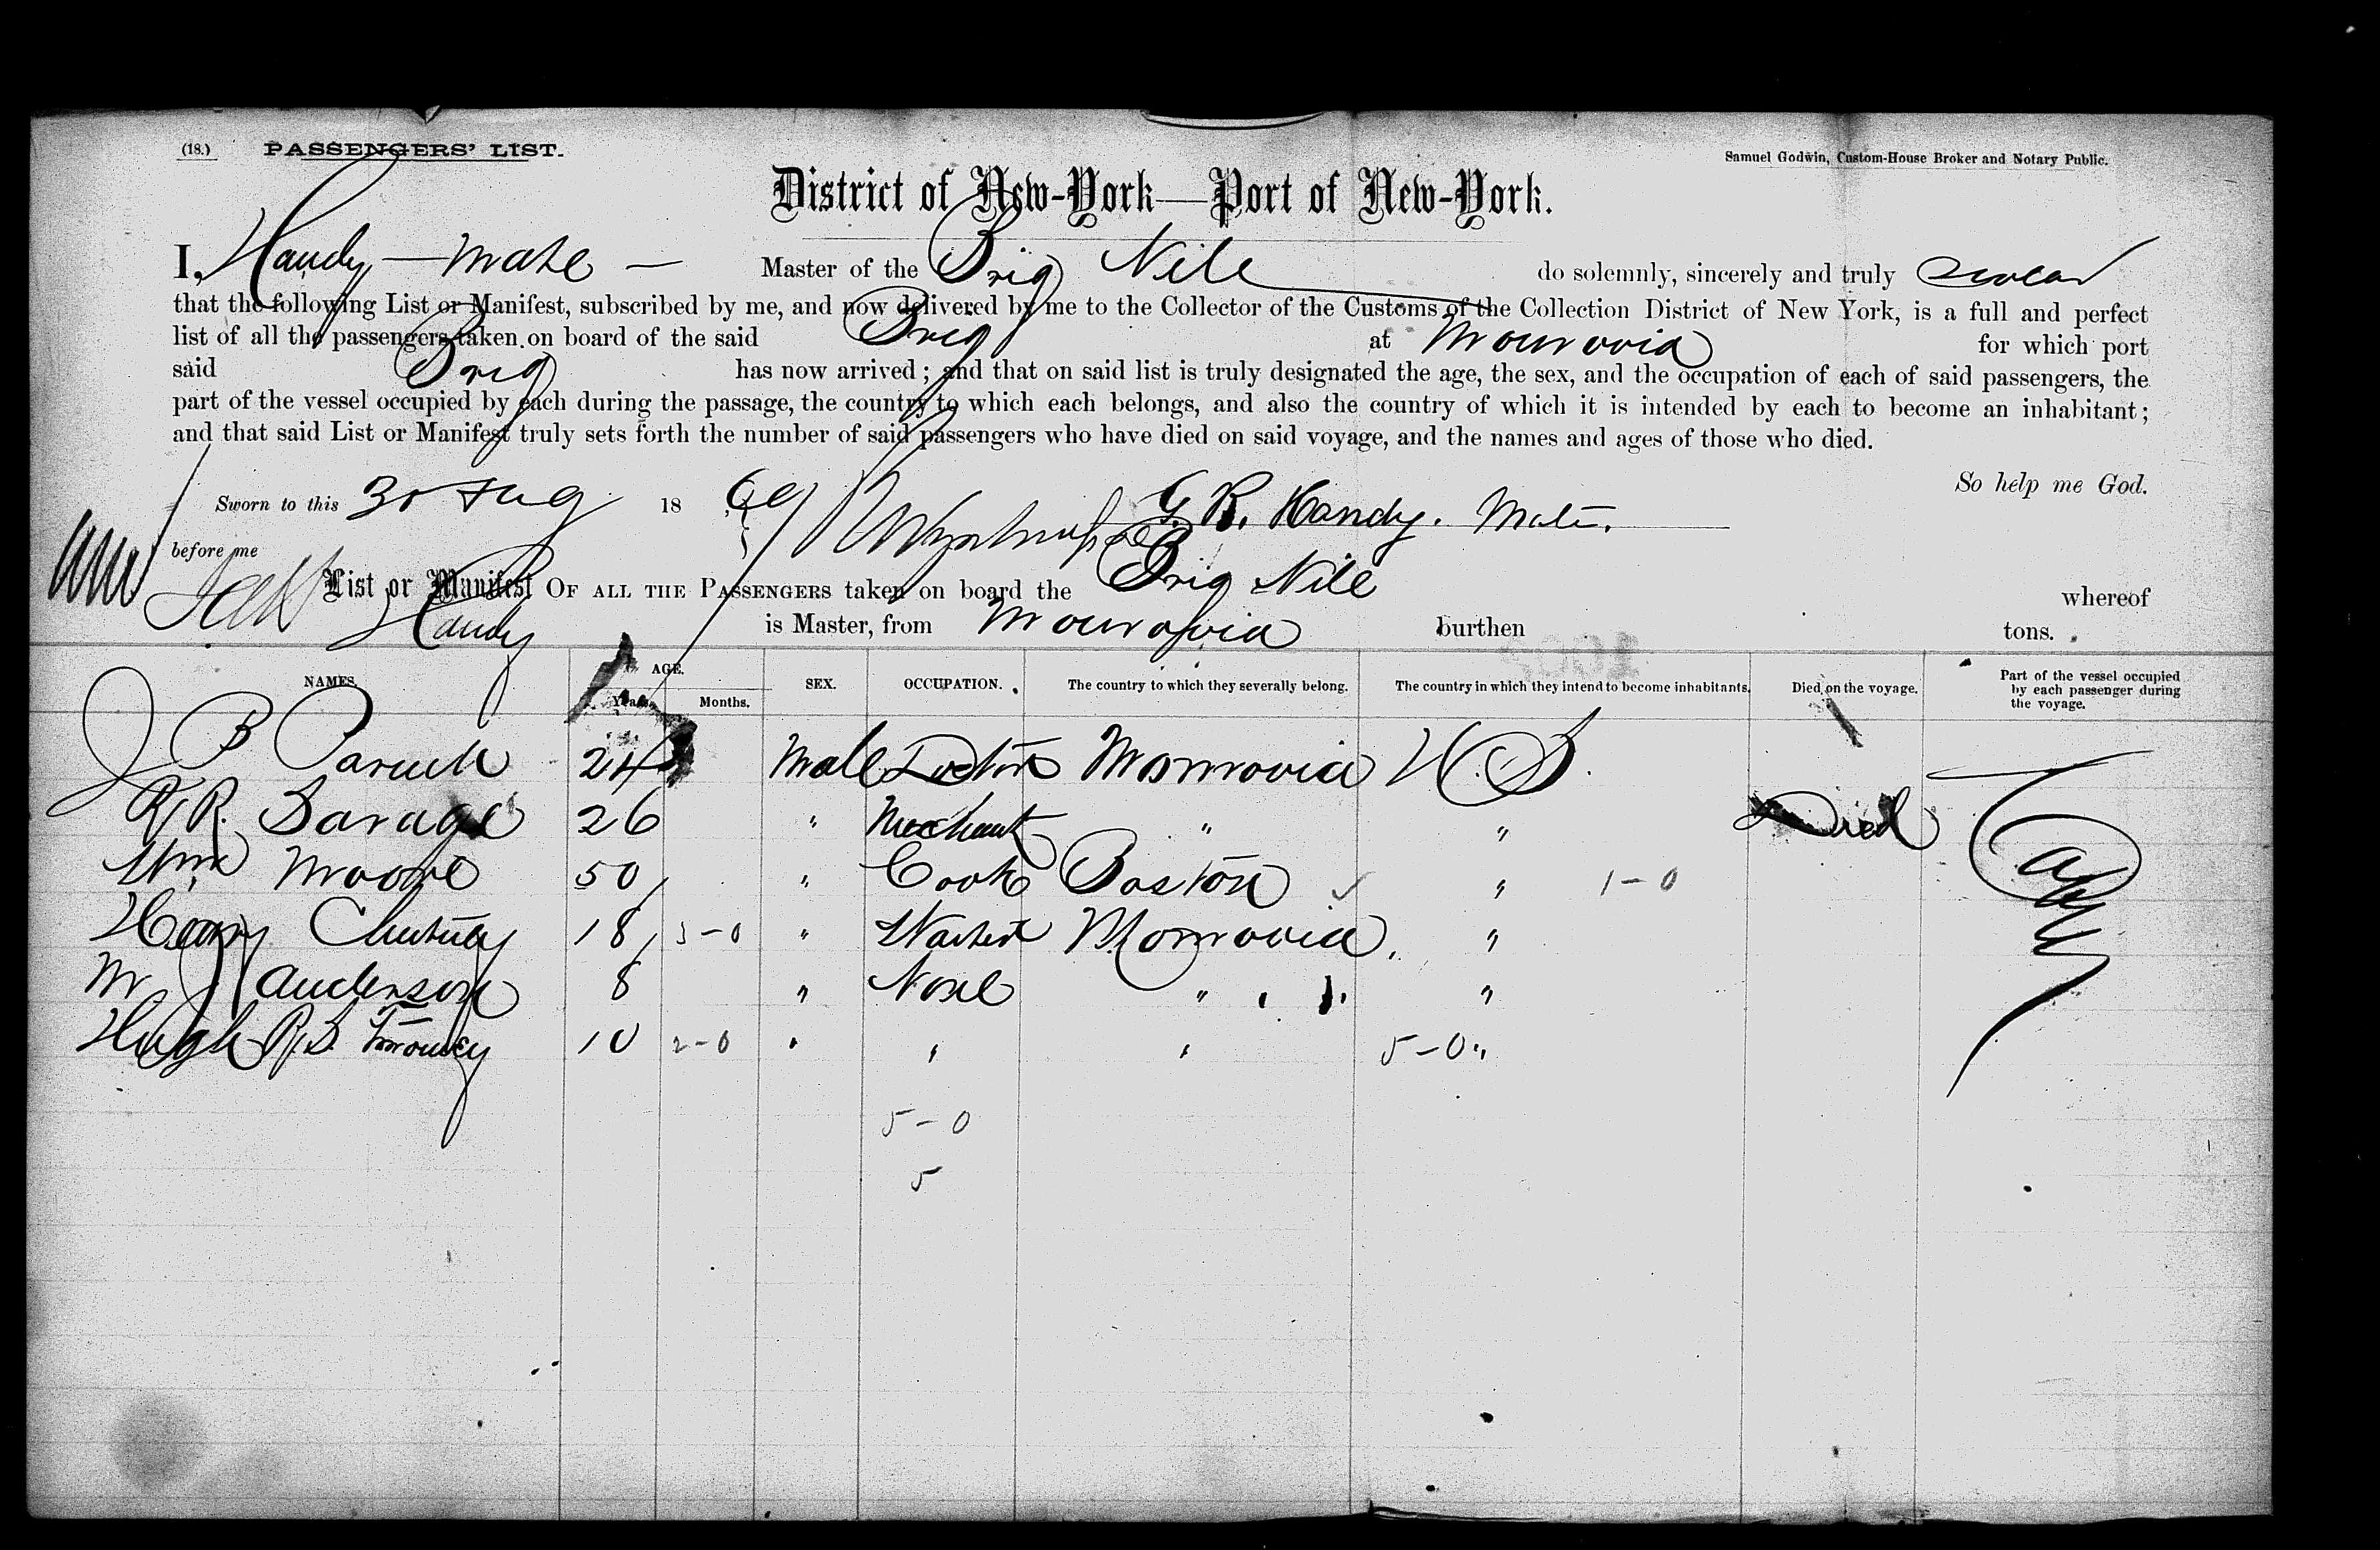 (18.) PASSENGERS' LIST.
Samuel Godwin, Custom-House Broker and Notary Public.
District of New-York—Port of New-York.
I, Handy — Mate — Master of the Brig Nile do solemnly, sincerely and truly swear
that the following List or Manifest, subscribed by me, and now delivered by me to the Collector of the Customs of the Collection District of New York, is a full and perfect
list of all the passengers taken on board of the said Brig at Monrovia for which port
said Brig has now arrived; and that on said list is truly designated the age, the sex, and the occupation of each of said passengers, the
part of the vessel occupied by each during the passage, the country to which each belongs, and also the country of which it is intended by each to become an inhabitant;
and that said List or Manifest truly sets forth the number of said passengers who have died on said voyage, and the names and ages of those who died.
So help me God.
Sworn to this Aug 18 G. R. Handy. Mate.
before me
List or Manifest OF ALL THE PASSENGERS taken on board the Brig Nile whereof
Handy is Master, from Monrovia burthen tons.
NAMES. AGE. Years. Months. SEX. OCCUPATION. The country to which they severally belong. The country in which they intend to become inhabitants. Died on the voyage. Part of the vessel occupied by each passenger during the voyage.
J B 24 Male Doctor Monrovia U.S.
R. R. Savage 26 " Merchant " " Died
Wm Moore 50 " Cook Boston " 1-0
Henry 18 3-0 " Monrovia. "
Anderson 8 " None " "
Hugh R. S. 10 2-0 " " " 5-0 "
5-0
5